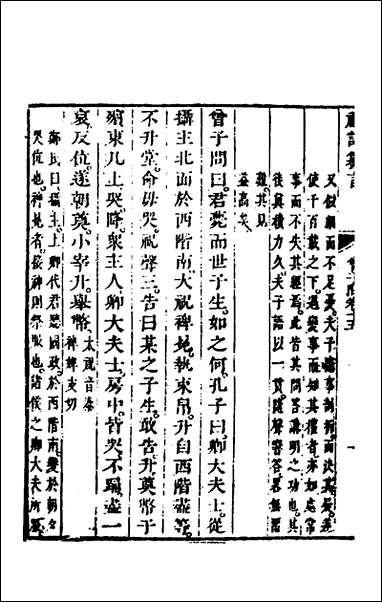 禮記集說 曾子問卷十五 一
又似顧而不足憂夫子隨事剖析而決其疑遂
使千百載之下遇變事而知其禮者亦如處常
事而不失其經焉此皆其問答講明之功也其
後真積力久夫子語以一貫隨聲響答畧無疑
難其見
益高矣
曾子問曰君薨而世子生如之何孔子曰卿大夫士從
攝主北面於西階南大祝裨冕執束帛升自西階盡等
不升堂命毋哭祝聲三告曰某之子生敢告升奠幣于
殯東几上哭降衆主人卿大夫士房中皆哭不踊盡一
哀反位遂朝奠小宰升舉幣 大祝音泰 裨婢支切
鄭氏曰攝主上卿代君聽國政於西階南變於朝夕
哭位也裨冕者接神則祭服也諸侯之卿大夫所服